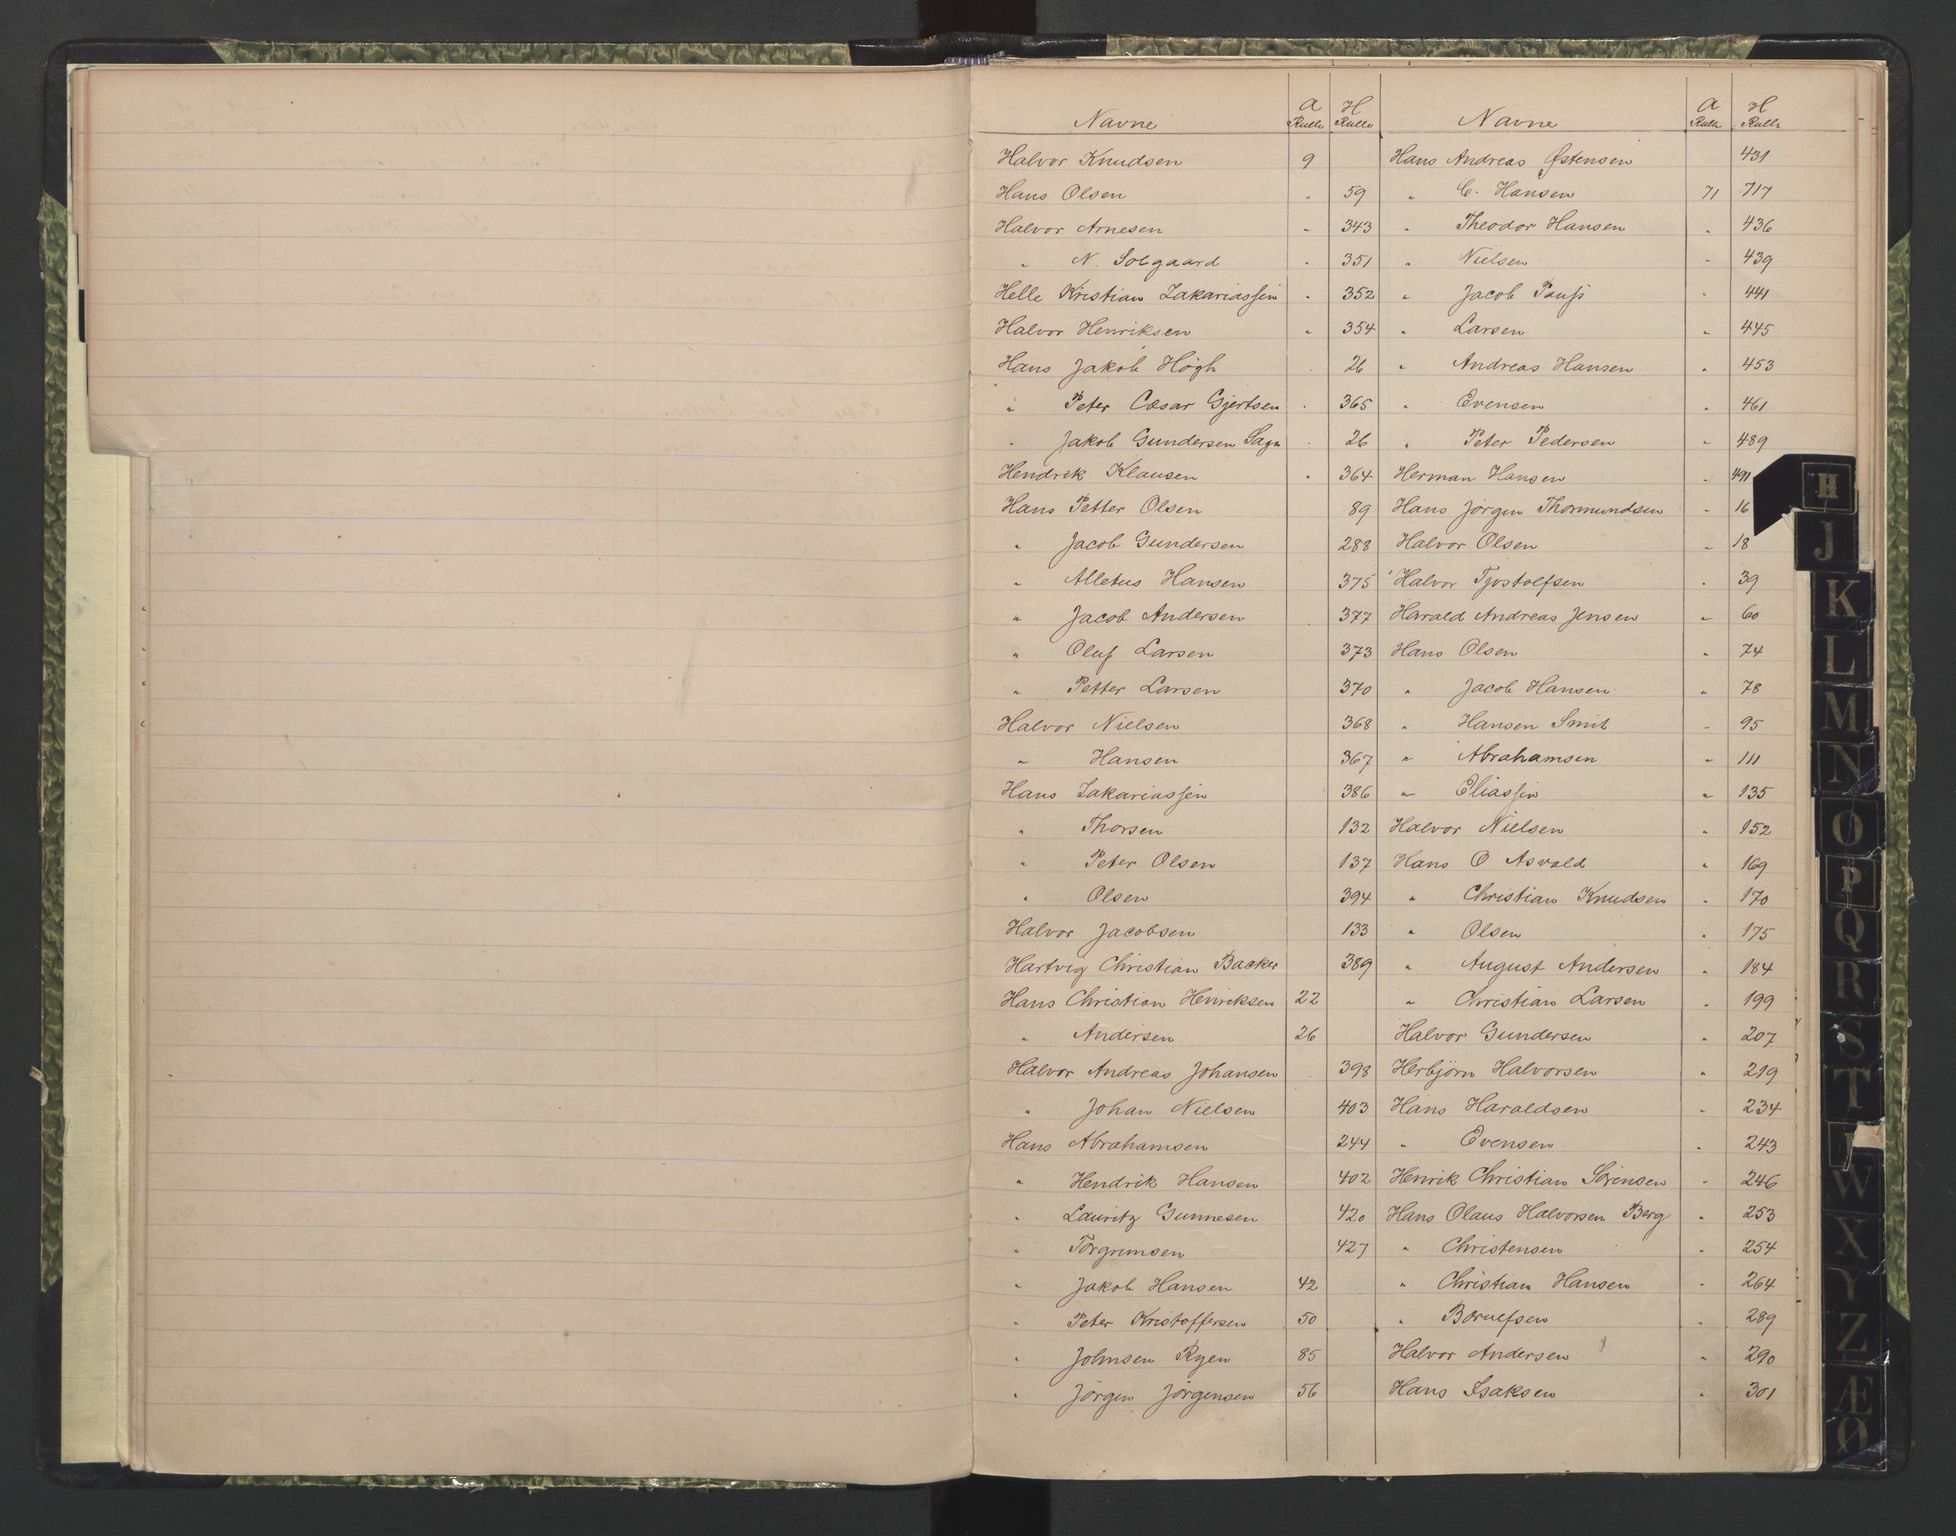 Navne A Rulle H Rulle
Halvor Knudsen 9
Hans Olsen " 59
Halvor Arnesen " 343
" N. Solgaard " 351
Helle Kristian Zakariassen " 352
Halvor Henriksen " 354
Hans Jakob Högh " 26
" Peter Cæsar Gjertsen " 365
" Jakob Gundersen " 26
Hendrik Klausen " 364
Hans Petter Olsen 89
" Jacob Gundersen 288
" Alletus Hansen 375
" Jacob Andersen 377
" Oluf Larsen 373
" Petter Larsen 370
Halvor Nielsen 368
" Hansen 367
Hans Zakariassen 386
" Thorsen 132
" Peter Olsen 137
" Olsen 394
Halvor Jacobsen 133
Hartvig Christian Backer 389
Hans Christian Henriksen 22
" Andersen 26
Halvor Andreas Johansen 398
" Johan Nielsen 403
Hans Abrahamsen 244
" Hendrik Hansen 402
" Lauritz Gunnesen 420
" Torgrimsen 427
" Jakob Hansen 42
" Peter Kristoffersen 50
" Johnsen Ryen 85
" Jörgen Jörgensen 56
Navne A Rulle H Rulle
Hans Andreas Østensen 431
" C. Hansen 71 717
" Theodor Hansen " 436
" Nielsen " 439
" Jacob Pauss " 441
" Larsen " 445
" Andreas Hansen " 453
" Evensen " 461
" Peter Pedersen " 489
Herman Hansen " 491
Hans Jörgen Thormundsen " 16
Halvor Olsen " 18
Halvor Tjostolfsen " 39
Harald Andreas Jensen " 60
Hans Olsen " 74
" Jacob Hansen " 78
" Hansen Smit " 95
" Abrahamsen " 111
" Eliassen " 135
Halvor Nielsen " 152
Hans O Asvald " 169
" Christian Knudsen " 170
" Olsen " 175
" August Andersen " 184
" Christian Larsen " 199
Halvor Gundersen " 207
Herbjörn Halvorsen " 219
Hans Haraldsen " 234
" Evensen " 243
Henrik Christian Sörensen " 246
Hans Olaus Halvorsen Berg " 253
" Christensen " 254
" Christian Hansen " 264
" " 289
Halvor Andersen " 290
Hans Isaksen " 301
H
J
K
L
M
N
O
P
Q
R
S
T
W
X
Y
Z
Æ
Ø